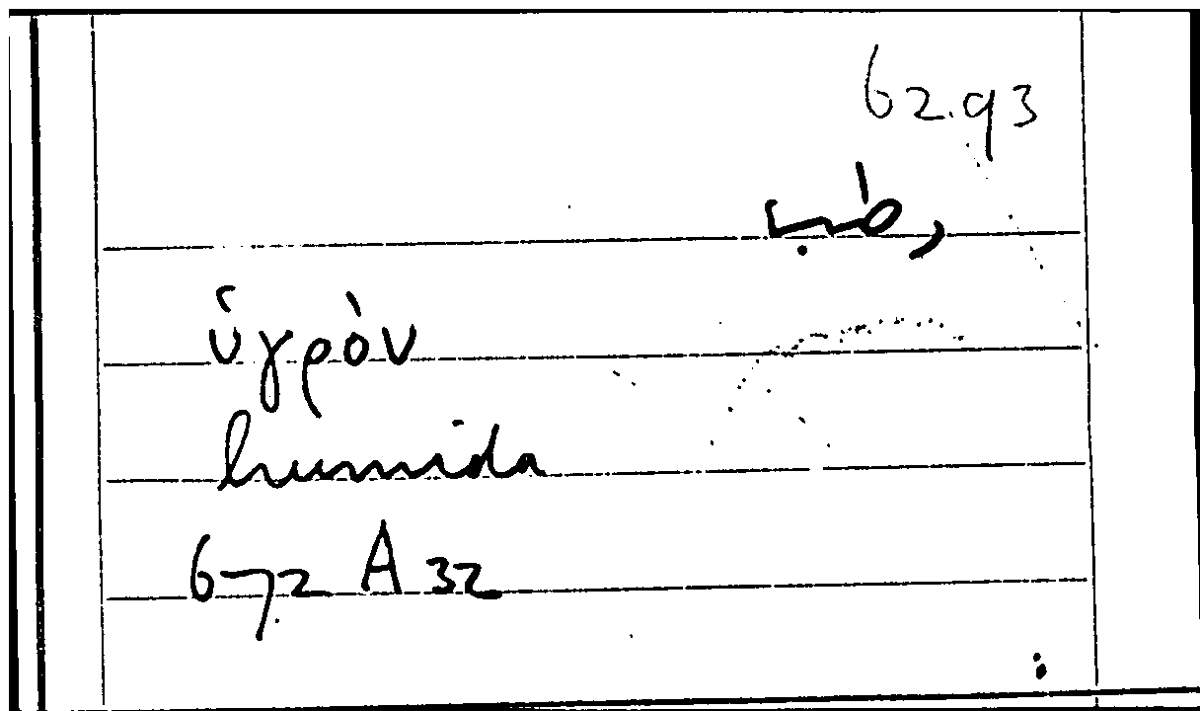 62.93
رطب
ὑγρὸν
humida
672 A 32